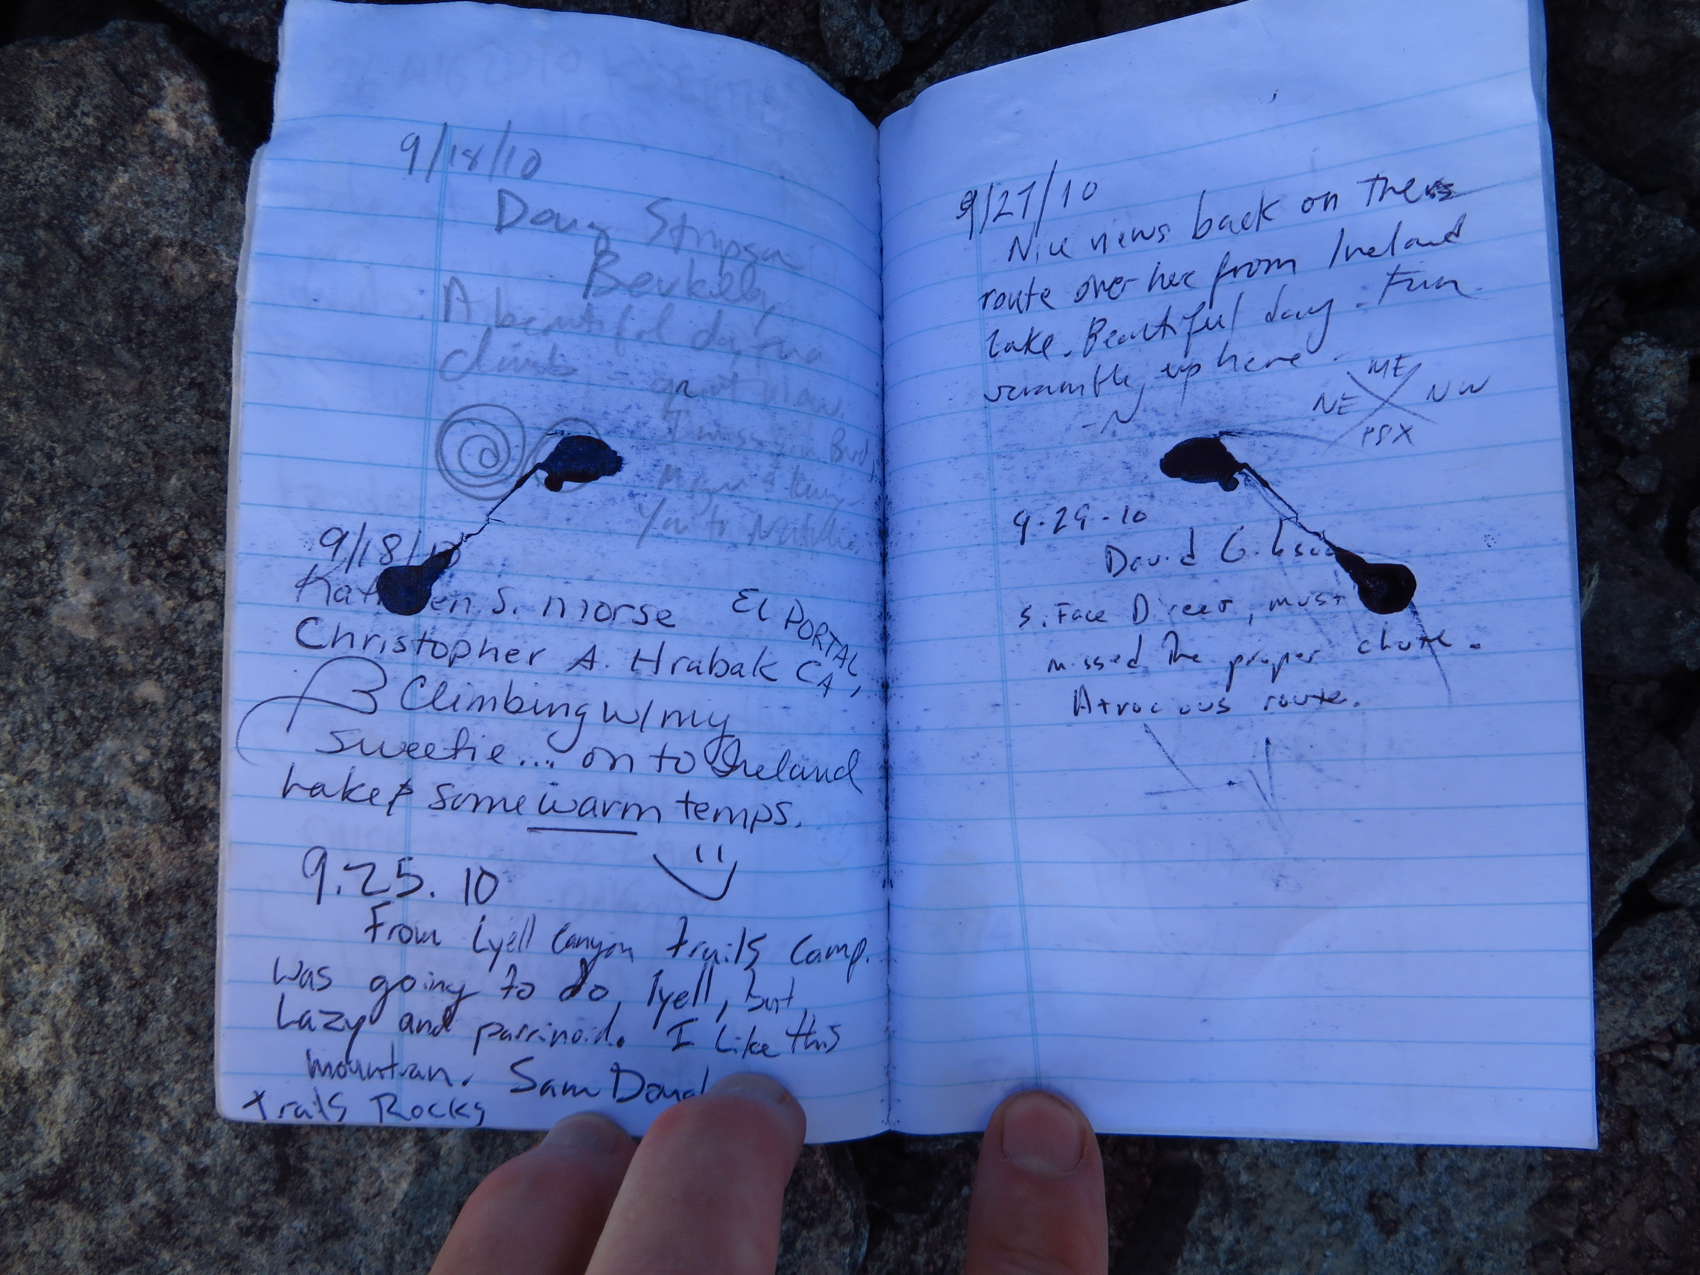 9/18/10
Doug
A beautiful day,
climb - great
9/18/10
en S. Morse EL PORTAL,
Christopher A. Hrabak CA
Climbing w/ my
sweetie... on to Ireland
Lake & some warm temps.
9.25.10
From Lyell Canyon Trails Camp.
Was going to do lyell, but
Lazy and parrinoid. I Like this
mountian. Sam
Trails Rocks
9/27/10
Nice views back on the
route over here from Ireland
Lake. Beautiful day. Fun
scramble up here.
-N
ME
NE NW
PSX
9-29-10
David
S. Face Direct, must
missed the proper chute.
Atrocious route.